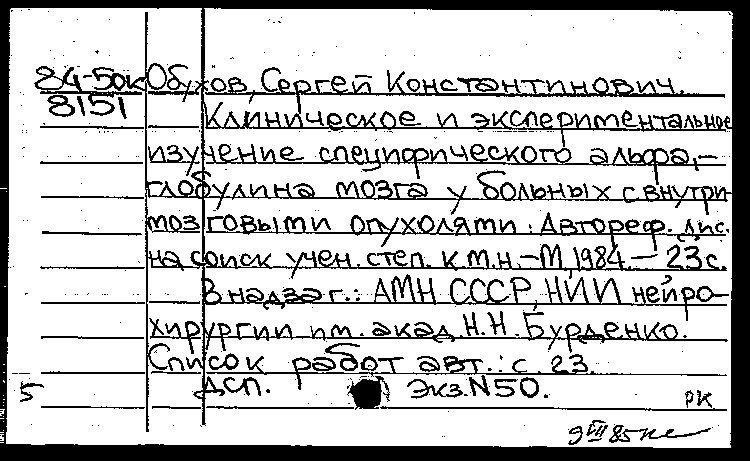 84-50к Обухов, Сергей Константинович.
8151
Клиническое и экспериментальное
изучение специфического альфа,-
глобулина мозга у больных с внутри-
мозговыми опухолями. Автореф. дис.
на соиск учен. степ. к.м.н.-М, 1984.-23с.
В надзаг.: АМН СССР, НИИ нейро-
хирургии им. акад. Н.Н. Бурденко.
Список работ авт.: с. 23.
5 ДСП. Экз.N50.
РК
9 VII 85